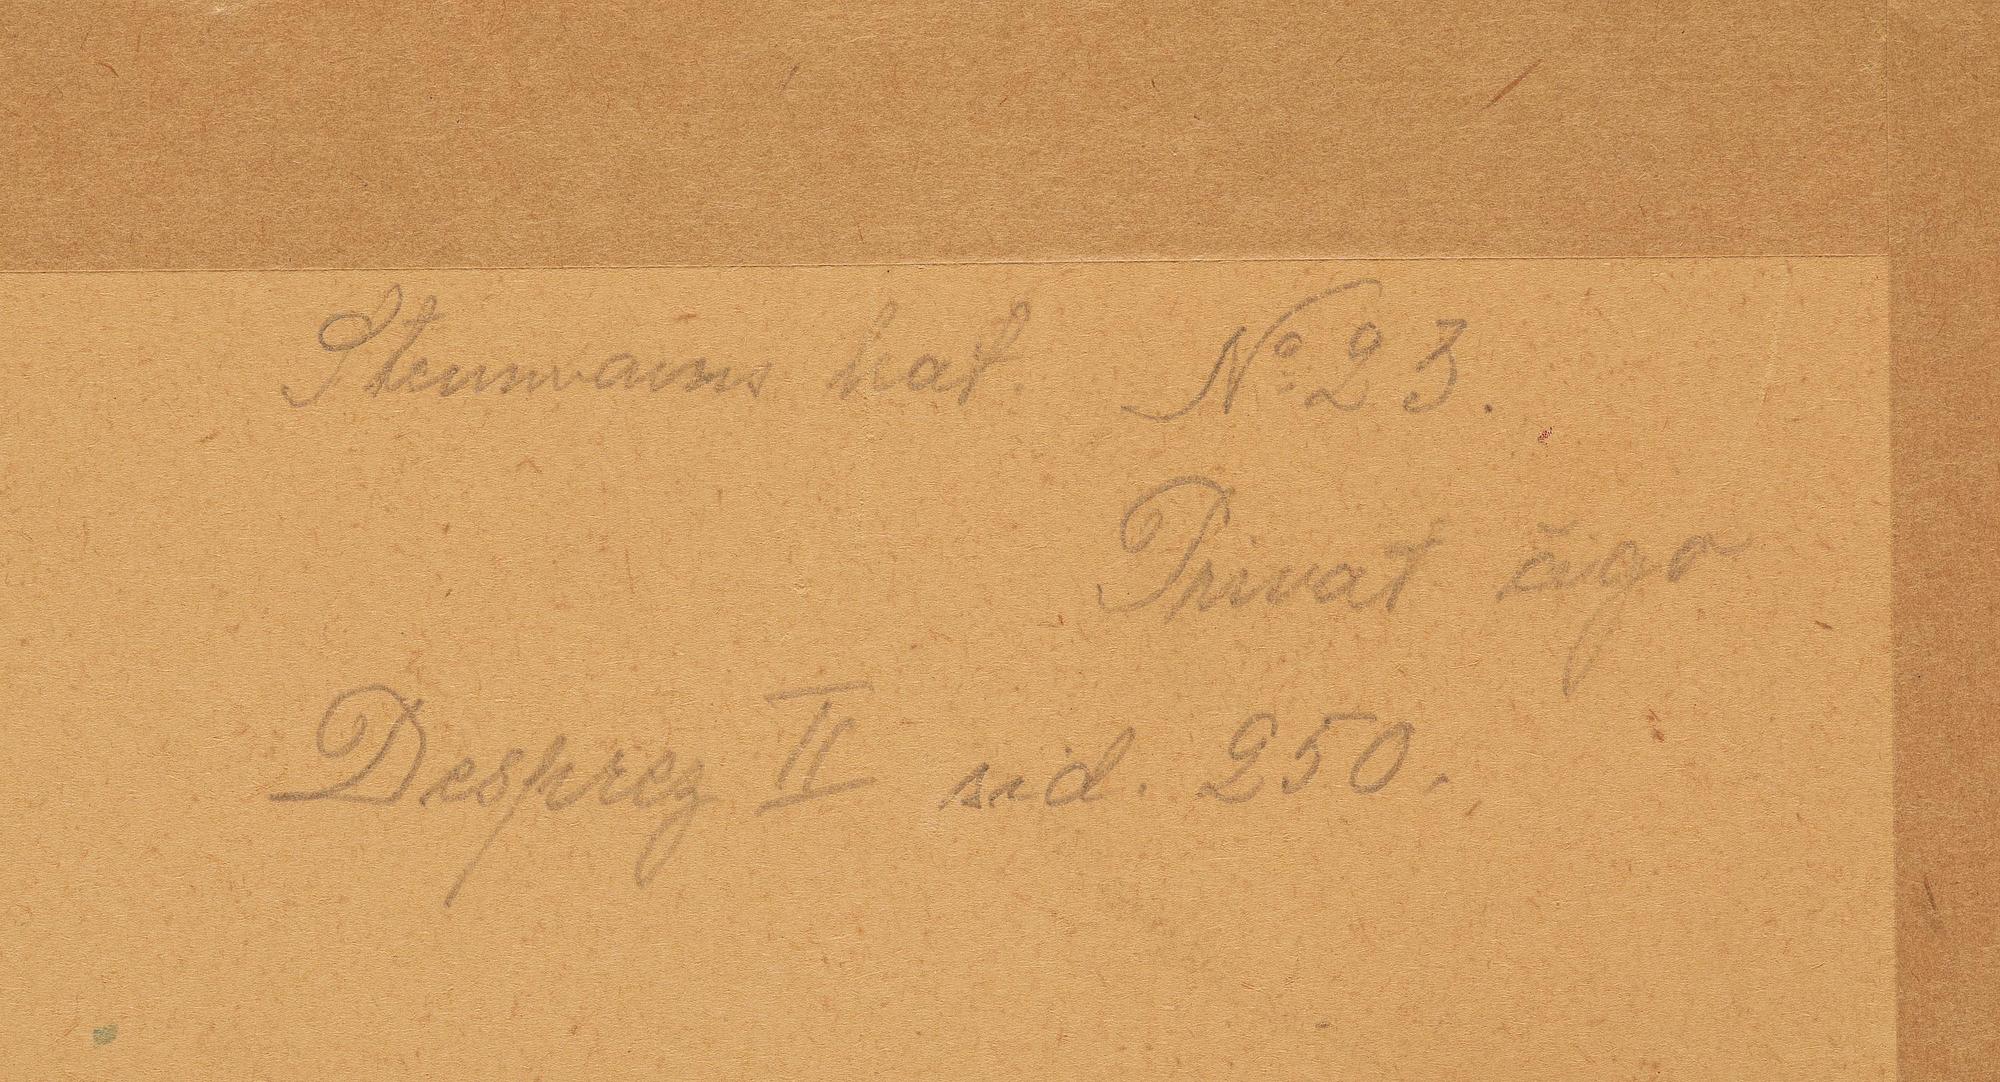 Stenmans kat. No 23.
Privat ägo
Desprez II sid. 250.